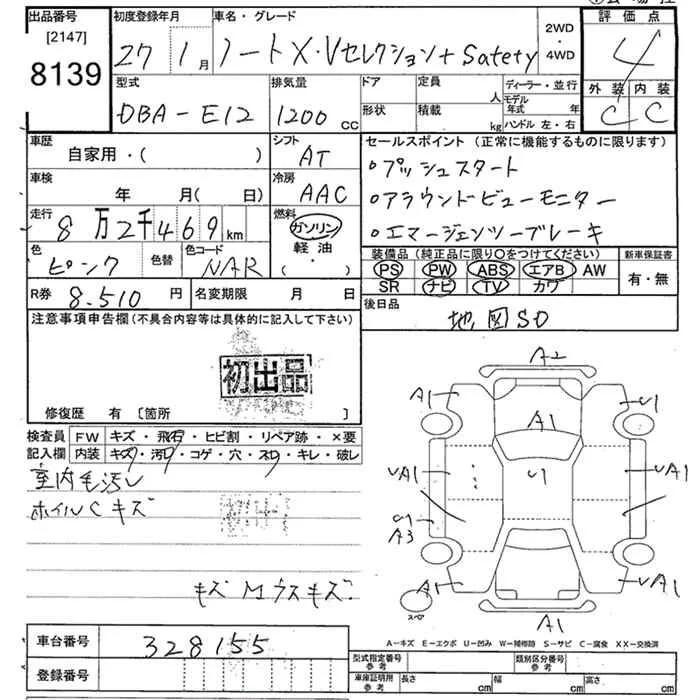 出品番号 初度登録年月 車名・グレード 2WD・4WD 評価点
[2147]
8139
27 1月 ノートX・Vセレクション+Safety 4
型式 排気量 ドア 定員 人 ディーラー・並行 外装 内装
DBA-E12 1200cc 形状 積載 kg モデル年式 年 C C
ハンドル 左・右
車歴 シフト セールスポイント(正常に機能するものに限ります)
自家用・( ) AT ○プッシュスタート
車検 冷房
年 月( 日) AAC ○アラウンドビューモニター
走行 燃料
8万2千469km ガソリン ○エマージェンツーブレーキ
軽油
・( )
色 色替 色コード 装備品(純正品に限り○をつけてください) 新車保証書
ピンク NAR PS PW ABS エアB AW 有・無
SR ナビ TV カワ
R券 8.510円 名変期限 月 日 後日品
地図SD
注意事項申告欄(不具合内容等は具体的に記入して下さい)
初出品
修復歴 有 [箇所 ]
検査員記入欄 FW キズ・飛石・ヒビ割・リペア跡・×要
内装 キズ・汚レ・コゲ・穴・スレ・キレ・破レ
室内毛汚レ
ホイルCキズ
キズMウスキズ
A2
A1 U1
A1
UA1 U1 UA1
U1
A3
A1 UA1
A1
スペア
A-キズ E-エクボ U-凹み W-補修跡 S-サビ C-腐食 XX-交換済
車台番号 328155
登録番号
型式指定番号 参考 類別区分番号 参考
車庫証明用 参考 長さ cm 幅 cm 高さ cm